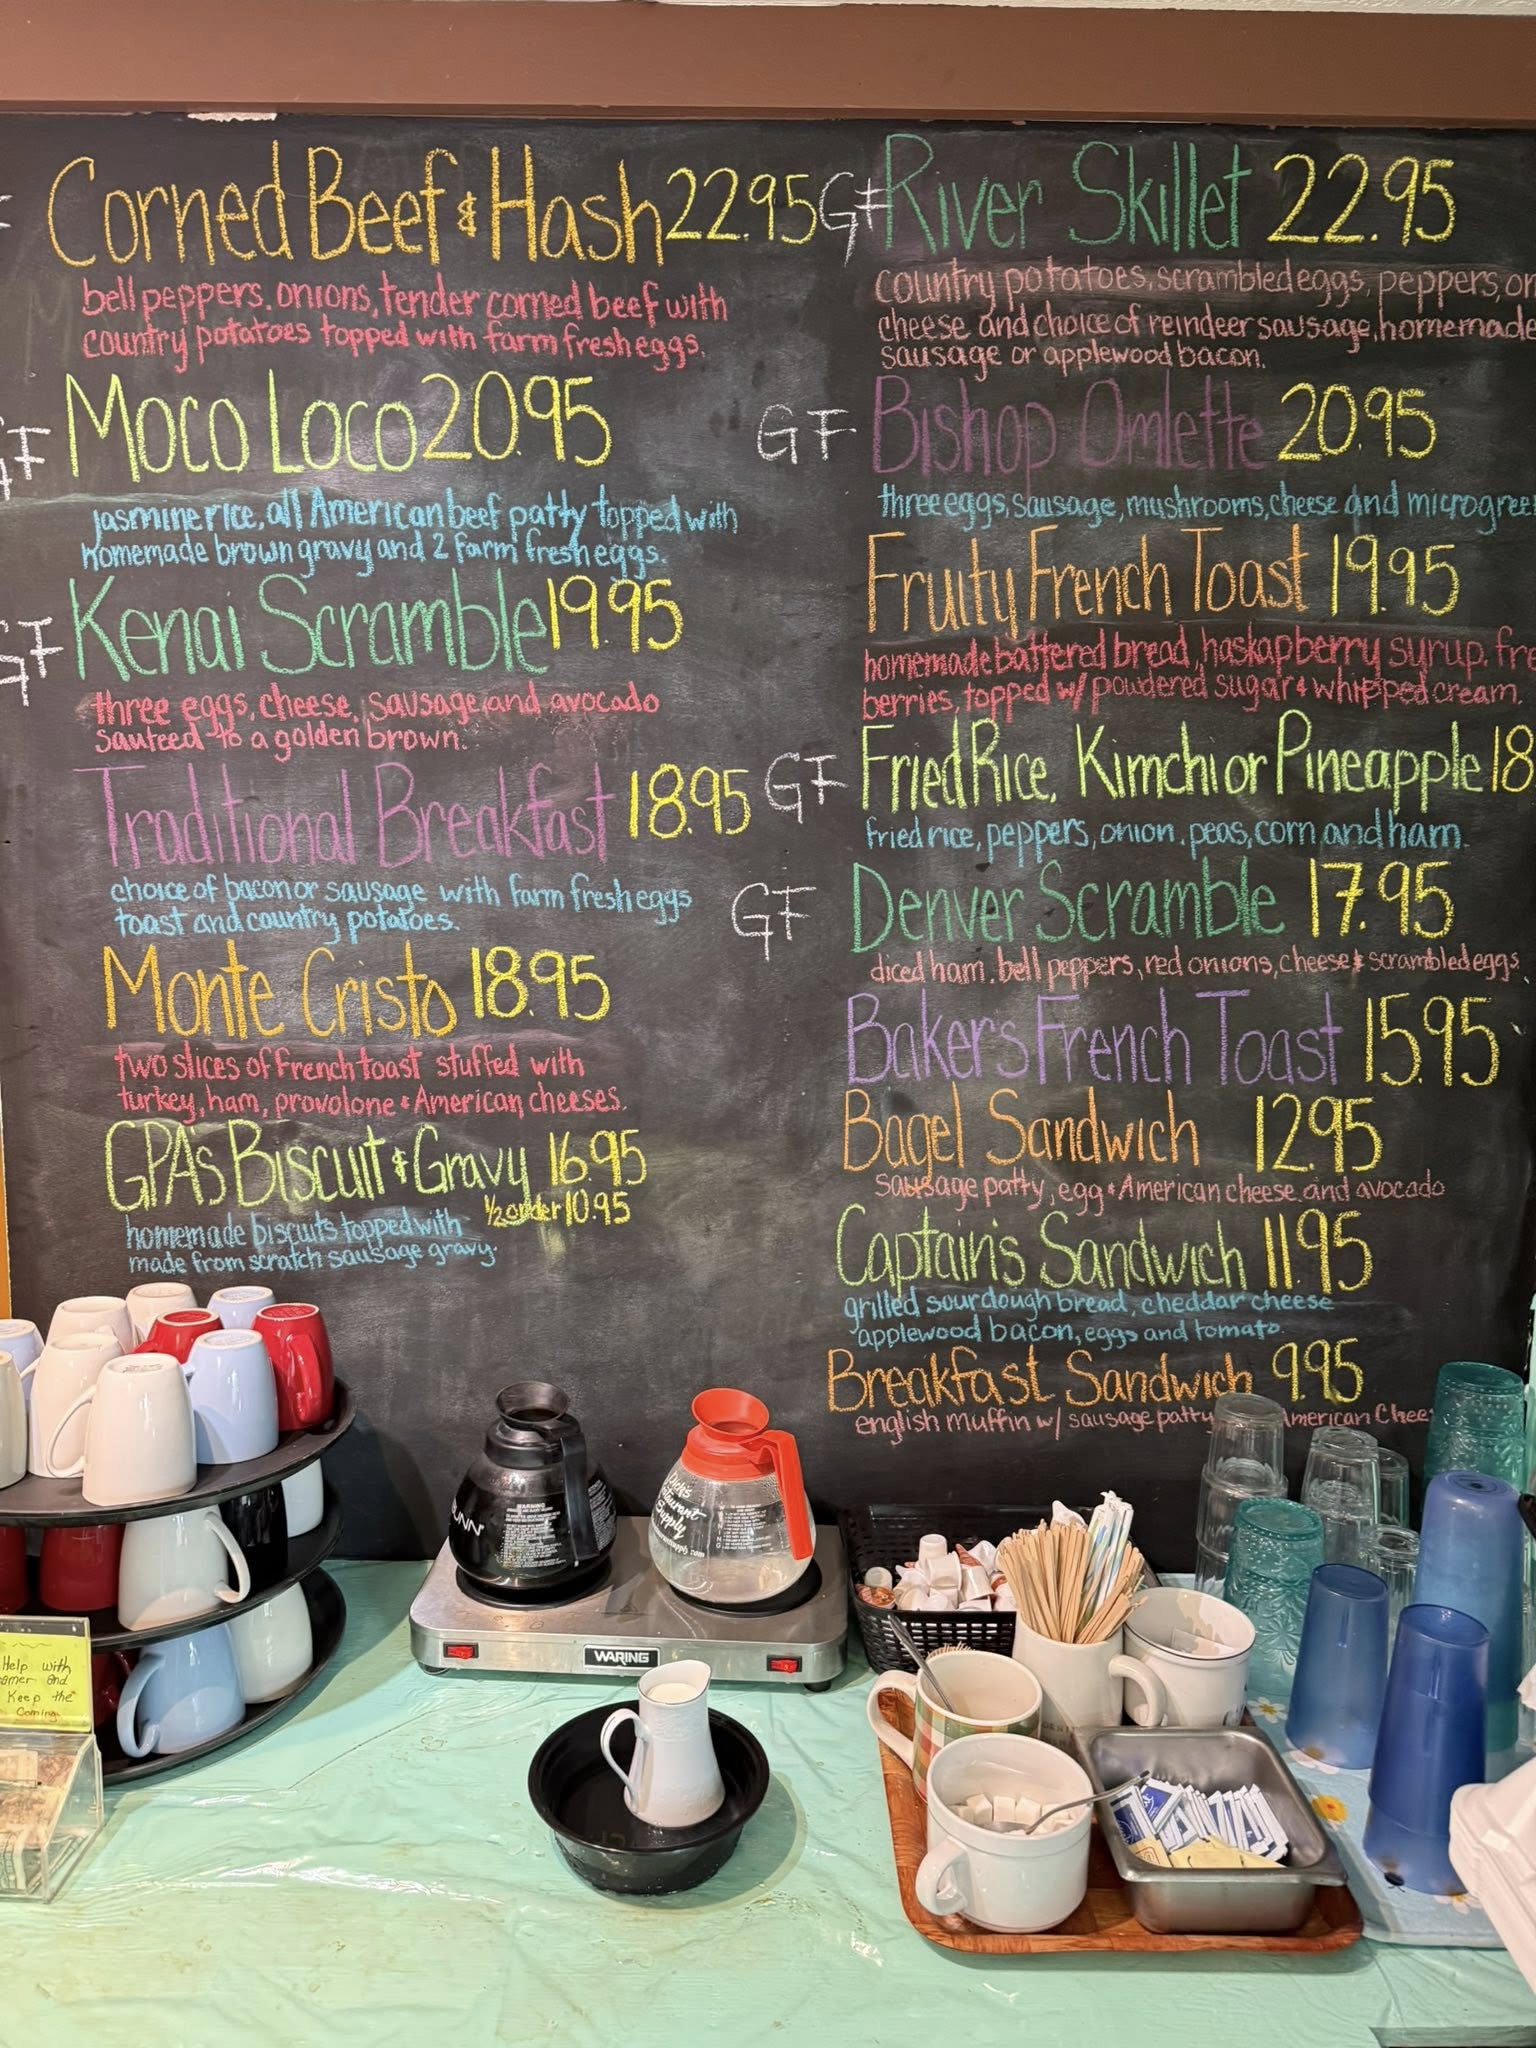 Corned Beef & Hash 22.95
bell peppers, onions, tender corned beef with
country potatoes topped with farm fresh eggs.
GF Moco Loco 20.95
jasmine rice, all American beef patty topped with
homemade brown gravy and 2 farm fresh eggs.
GF Kenai Scramble 19.95
three eggs, cheese, sausage and avocado
sauteed to a golden brown.
Traditional Breakfast 18.95
choice of bacon or sausage with farm fresh eggs
toast and country potatoes.
Monte Cristo 18.95
two slices of french toast stuffed with
turkey, ham, provolone & American cheeses.
GPAs Biscuit & Gravy 16.95
1/2 order 10.95
homemade biscuits topped with
made from scratch sausage gravy.
GF River Skillet 22.95
country potatoes, scrambled eggs, peppers, on
cheese and choice of reindeer sausage, homemade
sausage or applewood bacon.
GF Bishop Omlette 20.95
three eggs, sausage, mushrooms, cheese and microgree
Fruity French Toast 19.95
homemade battered bread, haskap berry syrup, fre
berries, topped w/ powdered sugar & whipped cream.
GF Fried Rice, Kimchi or Pineapple 18
fried rice, peppers, onion, peas, corn, and ham.
GF Denver Scramble 17.95
diced ham, bell peppers, red onions, cheese & scrambled eggs
Baker's French Toast 15.95
Bagel Sandwich 12.95
sausage patty, egg & American cheese and avocado
Captain's Sandwich 11.95
grilled sourdough bread, cheddar cheese
applewood bacon, eggs and tomato.
Breakfast Sandwich 9.95
english muffin w/ sausage patty American Chee
BUNN
WARNING
Dick's
Restaurant
Supply
WARING
Help with
and
Keep the
Coming